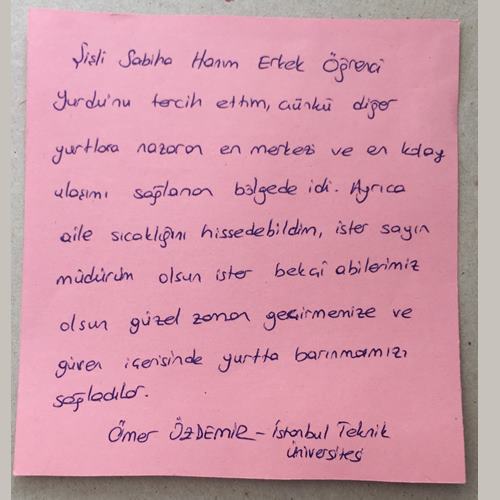 Şişli Sabiha Hanım Erkek Öğrenci
Yurdu'nu tercih ettim, çünkü diğer
yurtlara nazaran en merkezi ve en kolay
ulaşımı sağlanan bölgede idi. Ayrıca
aile sıcaklığını hissedebildim, ister sayın
müdürüm olsun ister bekçi abilerimiz
olsun güzel zaman geçirmemize ve
güven içerisinde yurtta barınmamızı
sağladılar.
Ömer ÖZDEMİR - İstanbul Teknik
Üniversitesi